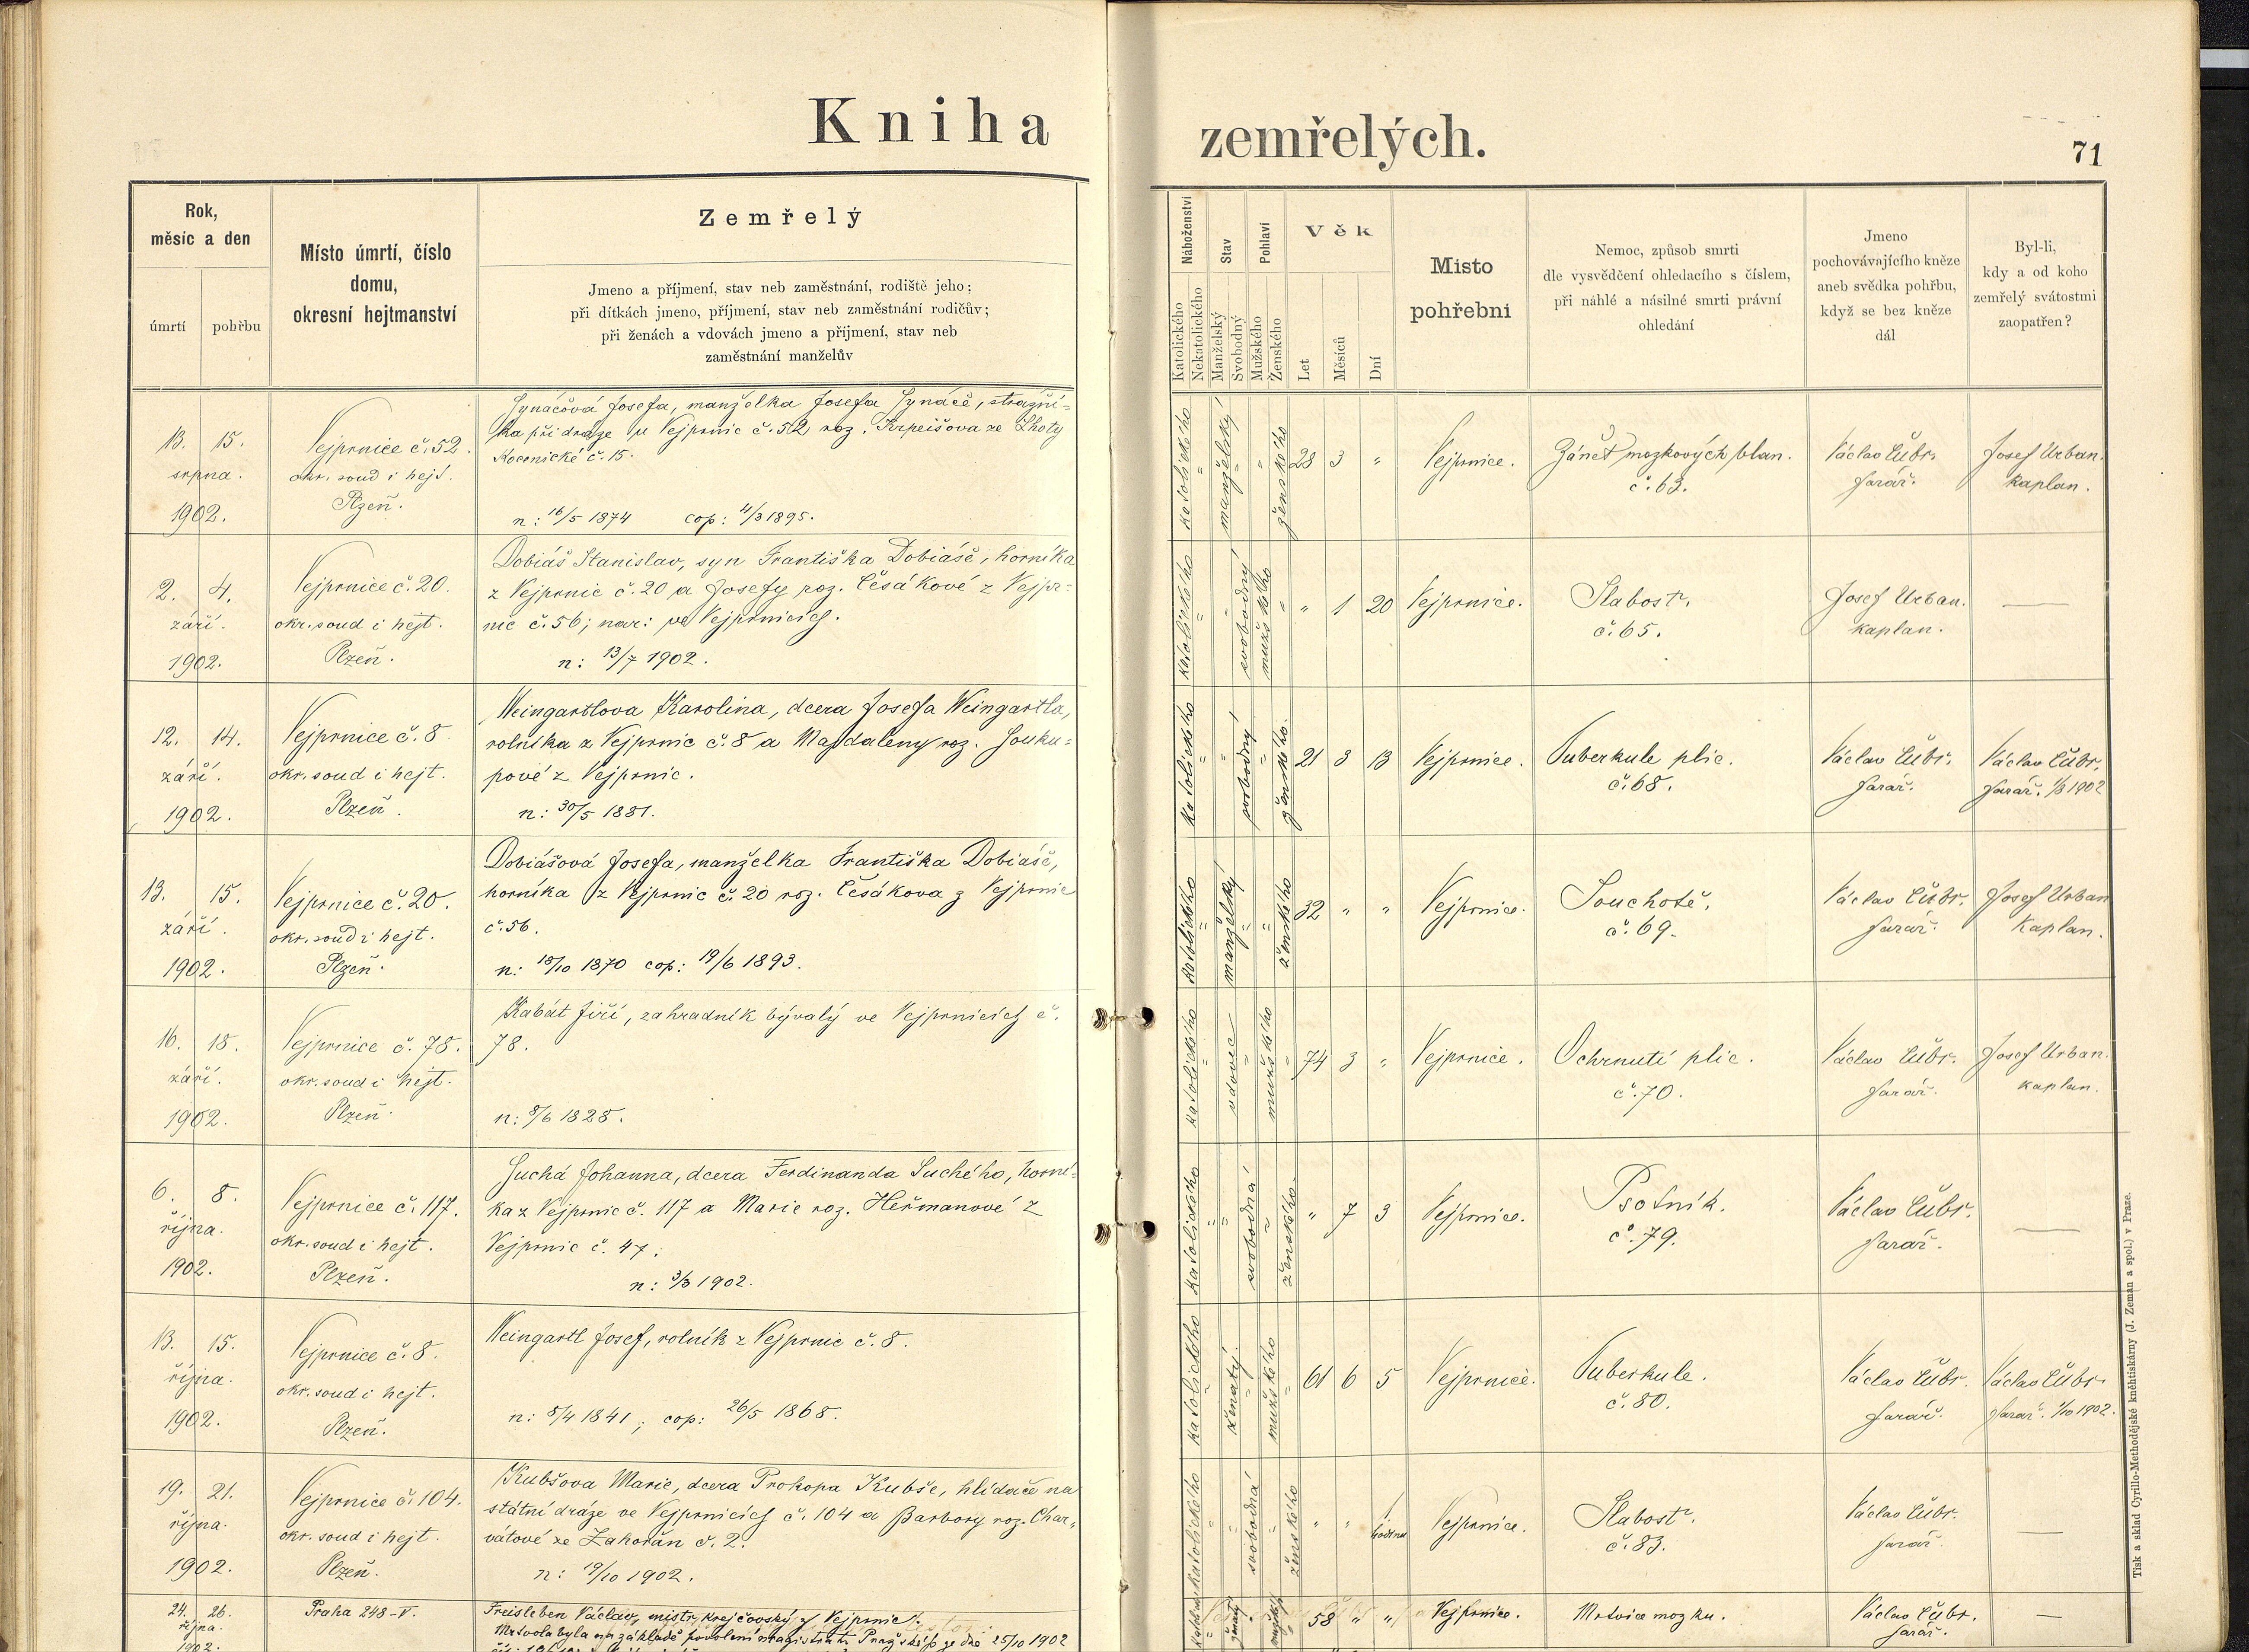 Kniha zemřelých.
71
Rok,
měsíc a den
úmrtí
pohřbu
Místo úmrtí, číslo
domu,
okresní hejtmanství
Zemřelý
Jmeno a příjmení, stav neb zaměstnání, rodiště jeho;
při dítkách jmeno, příjmení, stav neb zaměstnání rodičův;
při ženách a vdovách jmeno a příjmení, stav neb
zaměstnání manželův
Náboženství
Katolického
Nekatolického
Stav
Manželský
Svobodný
Pohlaví
Mužského
Ženského
Věk
Let
Měsíců
Dní
Místo
pohřební
Nemoc, způsob smrti
dle vysvědčení ohledacího s číslem,
při náhlé a násilné smrti právní
ohledání
Jmeno
pochovávajícího kněze
aneb svědka pohřbu,
když se bez kněze
dál
Byl-li,
kdy a od koho
zemřelý svátostmi
zaopatřen?
13. 15.
srpna.
1902.
Vejprnice č. 52.
okr. soud i hejt.
Plzeň.
Josefa, manželka Josefa strážní-
ka při dráze u Vejprnic č. 52 roz. ze Lhoty
č. 15.
n: 16/5 1874 cop: 4/3 1895.
katolického
manželský
ženského
28 3 "
Vejprnice.
Zánět mozkových blan.
č. 63.
Václav Čubr.
farář.
Josef Urban.
kaplan.
2. 4.
září.
1902.
Vejprnice č. 20.
okr. soud i hejt.
Plzeň.
Dobiáš Stanislav, syn Františka Dobiáše, horníka
z Vejprnic č. 20 a Josefy roz. Česákové z Vejpr-
nic č. 56; nar: ve Vejprnicích.
n: 13/7 1902.
katolického
svobodný
mužského
" 1 20
Vejprnice.
Slabost.
č. 65.
Josef Urban.
kaplan.
—
12. 14.
září.
1902.
Vejprnice č. 8
okr. soud i hejt.
Plzeň.
Weingartlova Karolina, dcera Josefa Weingartla,
rolníka z Vejprnic č. 8 a Magdaleny roz. Souku-
pové z Vejprnic.
n: 30/5 1881.
katolického
svobodný
ženského.
21 3 13
Vejprnice.
Tuberkule plic.
č. 68.
Václav Čubr.
farář.
Václav Čubr,
farář. 1902
13. 15.
září.
1902.
Vejprnice č. 20.
okr. soud i hejt.
Plzeň.
Dobiášová Josefa, manželka Františka Dobiáše,
horníka z Vejprnic č. 20 roz. Česákova z Vejprnic
č. 56.
n: 18/10 1870 cop: 19/6 1893.
katolického
manželský
ženského
32 " "
Vejprnice.
Souchotě.
č. 69.
Václav Čubr.
farář.
Josef Urban
kaplan.
16. 18.
září.
1902.
Vejprnice č. 78.
okr. soud i hejt.
Plzeň.
Kabát Jiří, zahradník bývalý ve Vejprnicích č.
78.
n: 8/6 1828.
katolického
vdovec
mužského
74 3 "
Vejprnice.
Ochrnutí plic.
č. 70.
Václav Čubr.
farář.
Josef Urban.
kaplan.
6. 8.
října.
1902.
Vejprnice č. 117.
okr. soud i hejt.
Plzeň.
Suchá Johanna, dcera Ferdinanda Suchého, horní-
ka z Vejprnic č. 117 a Marie roz. Heřmanové z
Vejprnic č. 47.
n: 3/3 1902.
katolického
svobodná
ženského.
" 7 3
Vejprnice.
Psotník.
č. 79.
Václav Čubr.
farář.
—
13. 15.
října.
1902.
Vejprnice č. 8.
okr. soud i hejt.
Plzeň.
Weingartl Josef, rolník z Vejprnic č. 8.
n: 8/4 1841; cop: 26/5 1868.
katolického
ženatý.
mužského
61 6 5
Vejprnice.
Tuberkule.
č. 80.
Václav Čubr.
farář.
Václav Čubr.
farář. 1/10 1902.
19. 21.
října.
1902.
Vejprnice č. 104.
okr. soud i hejt.
Plzeň.
Kubšova Marie, dcera Prokopa Kubše, hlídače na
státní dráze ve Vejprnicích č. 104 a Barbory roz. Char-
vátové ze Zahořan č. 2.
n: 19/10 1902.
katolického
svobodná
ženského
" " hodinu
Vejprnice.
Slabost.
č. 83.
Václav Čubr.
farář.
—
24. 26.
října.
1902.
Praha 248-V.
Freisleben Václav, mistr krejčovský z Vejprnic.
Mrtvola byla na základě povolení magistrátu Pražského ze dne 25/10 1902
ženatý
58 " "
Vejprnice.
Mrtvice mozku.
Václav Čubr.
farář.
—
Tisk a sklad Cyrillo-Methodějské knihtiskárny (J. Zeman a spol.) v Praze.